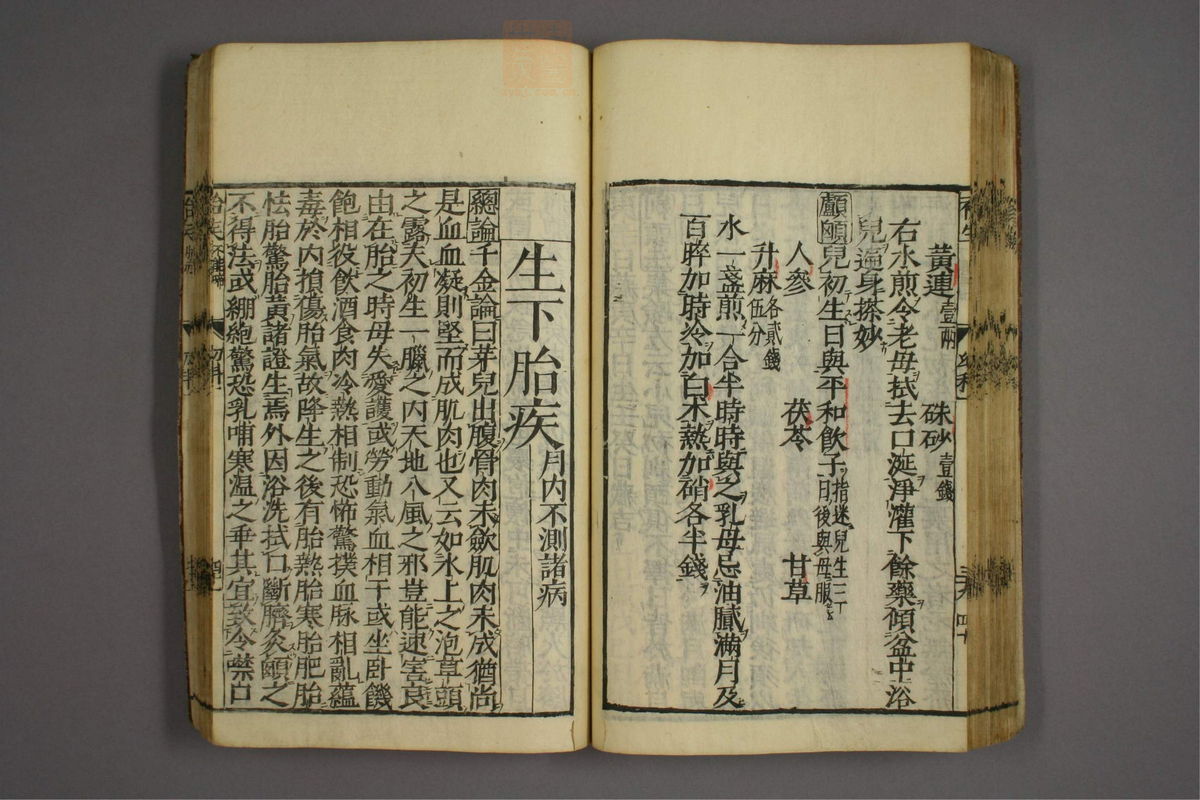 黃連壹兩 硃砂壹錢
右水煎令老母拭去口涎淨灌下餘藥傾盆中浴
兒遍身搽妙
顱顖兒初生日與平和飲子指迷兒生三日後與母服
人參 茯苓 甘草
升麻各貳錢伍分
水一盞煎一合半時時與之乳母忌油膩滿月及
百晬加時冷加白术熱加硝各半錢
生下胎疾月内不測諸病
總論千金論曰芽兒出腹骨肉未歛肌肉未成猶尚
是血血凝則堅而成肌肉也又云如水上之泡草頭
之露夫初生一臘之内天地八風之邪豈能速害良
由在胎之時母失愛護或勞動氣血相干或坐卧饑
飽相役飲酒食肉冷熱相制恐怖驚撲血脉相亂蘊
毒於内損傷胎氣故降生之後有胎熱胎寒胎肥胎
怯胎驚胎黃諸證生焉外因浴洗拭口斷臍灸顖之
不得法或綳䘐驚恐乳哺寒温之乖其宜致令噤口